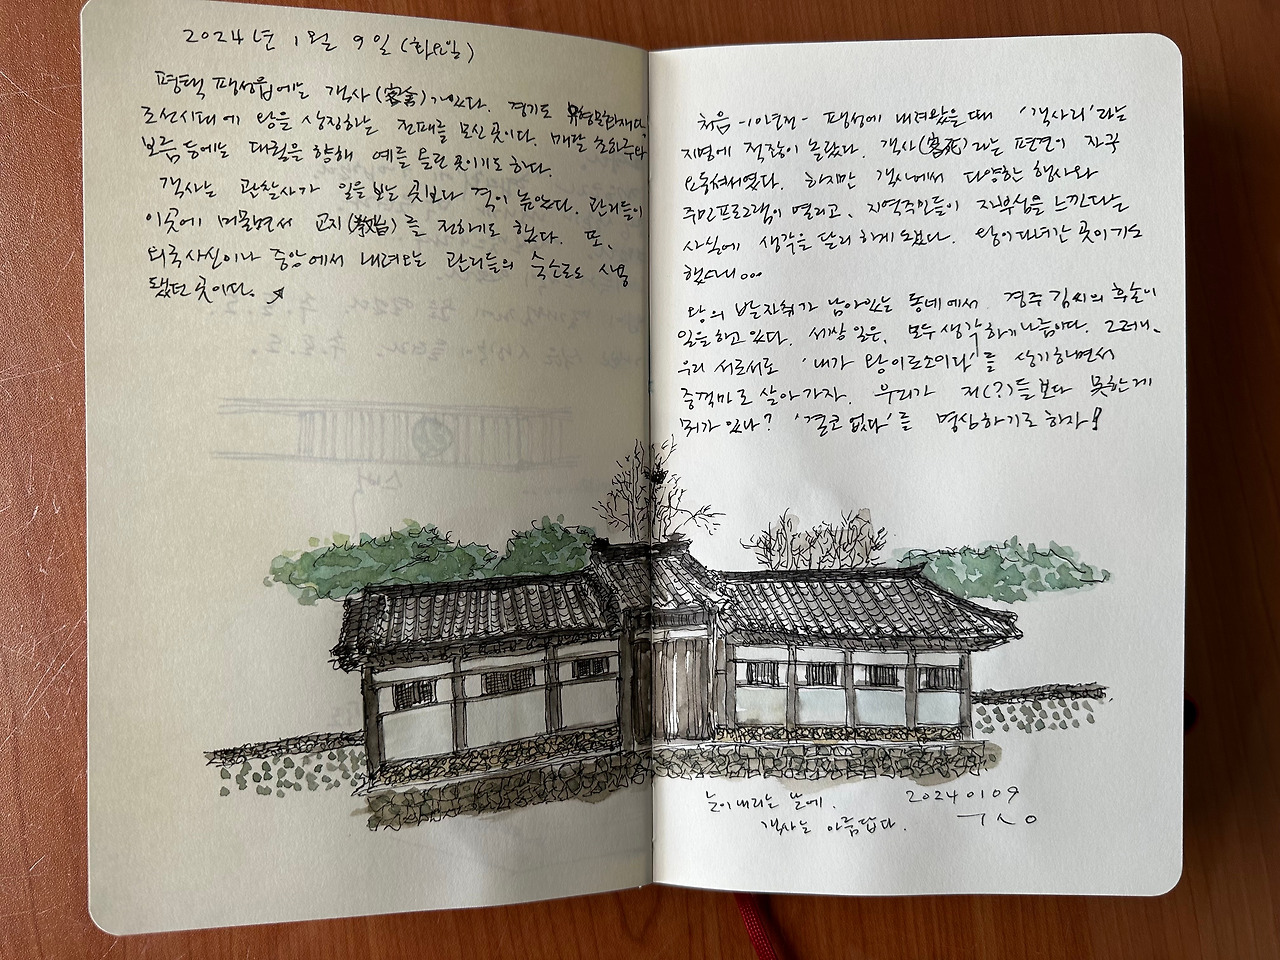 2024년 1월 9일(화요일)
평택 팽성읍에는 객사(客舍)가 있다. 경기도 유형문화재다.
조선시대에 왕을 상징하는 전패를 모신 곳이다. 매달 초하루와
보름 등에는 대궐을 향해 예를 올린 곳이기도 하다.
객사는 관찰사가 일을 보는 곳보다 격이 높았다. 관리들이
이곳에 머물면서 교지(敎旨)를 전하기도 했다. 또,
외국사신이나 중앙에서 내려오는 관리들의 숙소로도 사용
됐던 곳이다.
처음 -10년전- 팽성에 내려왔을 때 '객사리'라는
지명에 적잖이 놀랐다. 객사(客死)라는 편견이 자꾸
오독시켰다. 하지만 객사에서 다양한 행사와
주민프로그램이 열리고, 지역주민들이 자부심을 느낀다는
사실에 생각을 달리 하게 도왔다. 왕이 다녀간 곳이기도
했으니...
왕의 발자취가 남아있는 동네에서 경주 김씨의 후손이
일을 하고 있다. 세상 일은, 모두 생각하기 나름이다. 그러니,
우리 서로서로 '내가 왕이로소이다'를 상기하면서
중꺾마로 살아가자. 우리가 저(?)들보다 못한 게
뭐가 있나? '결코 없다'를 명심하기로 하자!
눈이 내리는 날에.
객사는 아름답다.
20240109
ㄱㅅㅇ